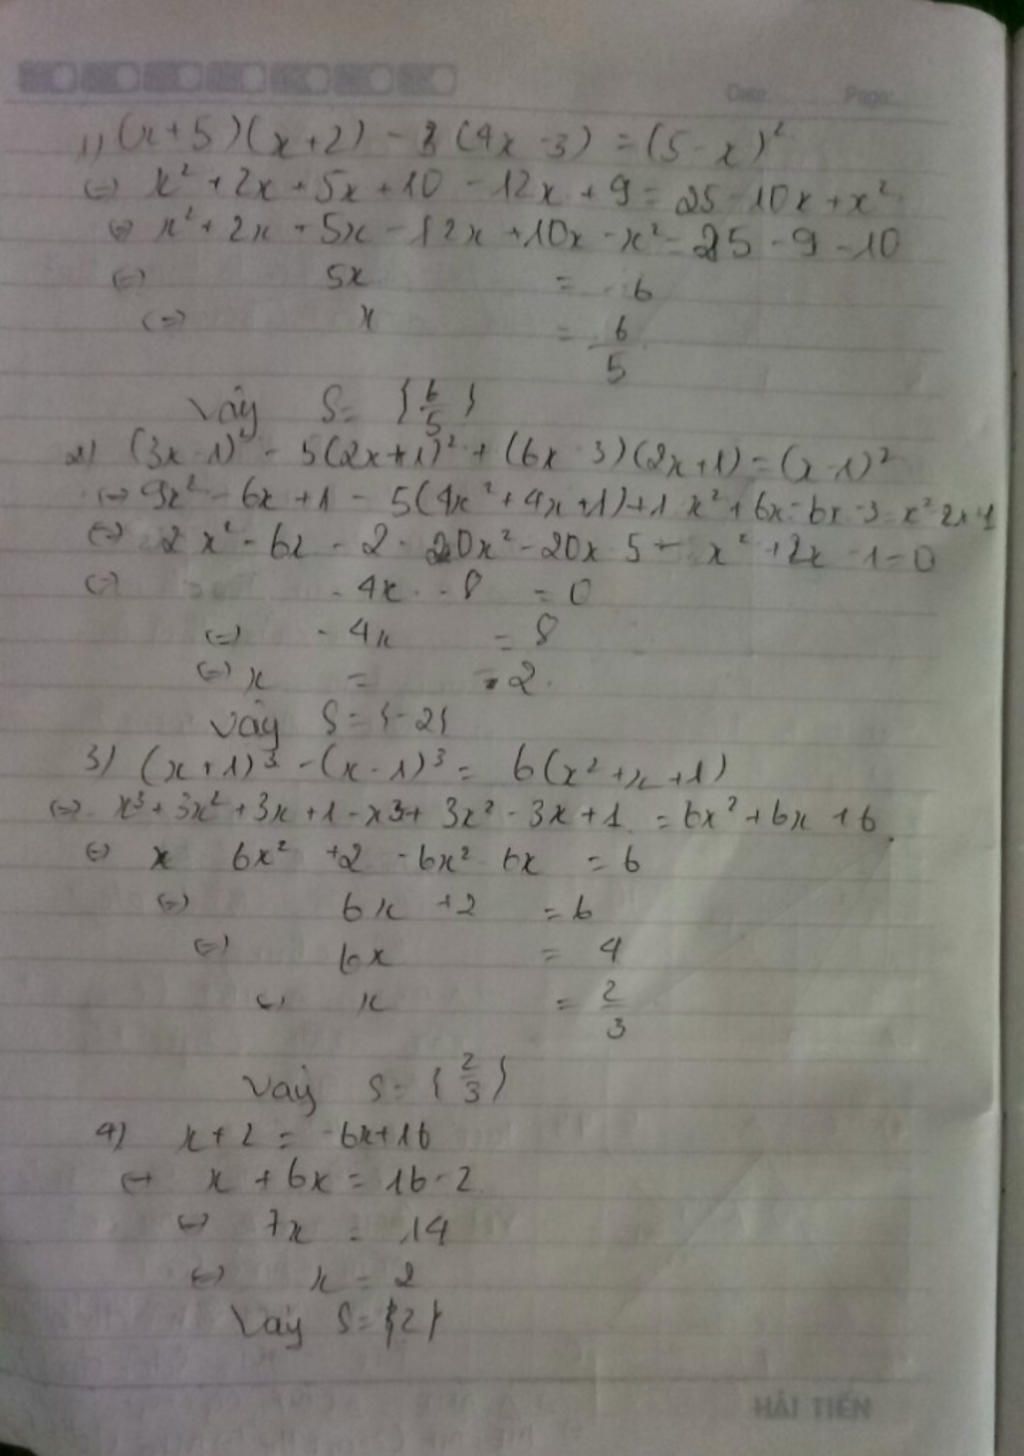 Date: Page:
1) (x+5)(x+2) - 3(4x-3) = (5-x)²
(=) x² + 2x + 5x + 10 - 12x + 9 = 25 - 10x + x²
(=) x² + 2x + 5x - 12x + 10x - x² = 25 - 9 - 10
(=) 5x = 6
(=) x = 6/5
Vậy S = {6/5}
2) (3x-1)² - 5(2x+1)² + (6x-3)(2x+1) = (x-1)²
(=) 9x² - 6x + 1 - 5(4x² + 4x + 1) +
(=) - 20x² - 20x - 5 - x² + 2x - 1 = 0
(=) - 4x - 8 = 0
(=) - 4x = 8
(=) x = -2
Vậy S = {-2}
3) (x+1)³ - (x-1)³ = 6(x² + x + 1)
(=) x³ + 3x² + 3x + 1 - x³ + 3x² - 3x + 1 = 6x² + 6x + 6
(=) x 6x² + 2 - 6x² 6x = 6
(=) 6x + 2 = 6
(=) 6x = 4
(=) x = 2/3
Vậy S = {2/3}
4) x + 2 = -6x + 16
(=) x + 6x = 16 - 2
(=) 7x = 14
(=) x = 2
Vậy S = {2}
HẢI TIẾN